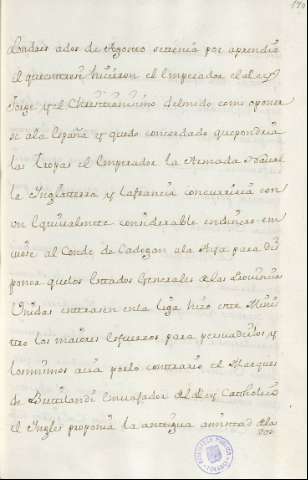 190
Londres ados de Agosto setenia por aprendiz
el que entren hicieron el Emperador el Rey
Jorge y el Christianisimo del modo como oponer
se ala España y quedo concordado que pondria
las Tropas el Emperador la Armada Naval
la Inglatterra y la francia concurriria con
un Equivalente considerable en dinero em
viose al Conde de Cadogan ala Aya para dis
poner que los Estados Generales de las Provincias
Unidas entrasen en la liga hizo este Minis
tro los maiores esfuerzos para persuadirlos y
lo mismo acia por lo contrario el Marques
de Berretilandi Embajador del Rey Catholico
el Ingles proponia la antigua amistad de la
dos
BIBLIOTECA PUBLICA
TOLEDO